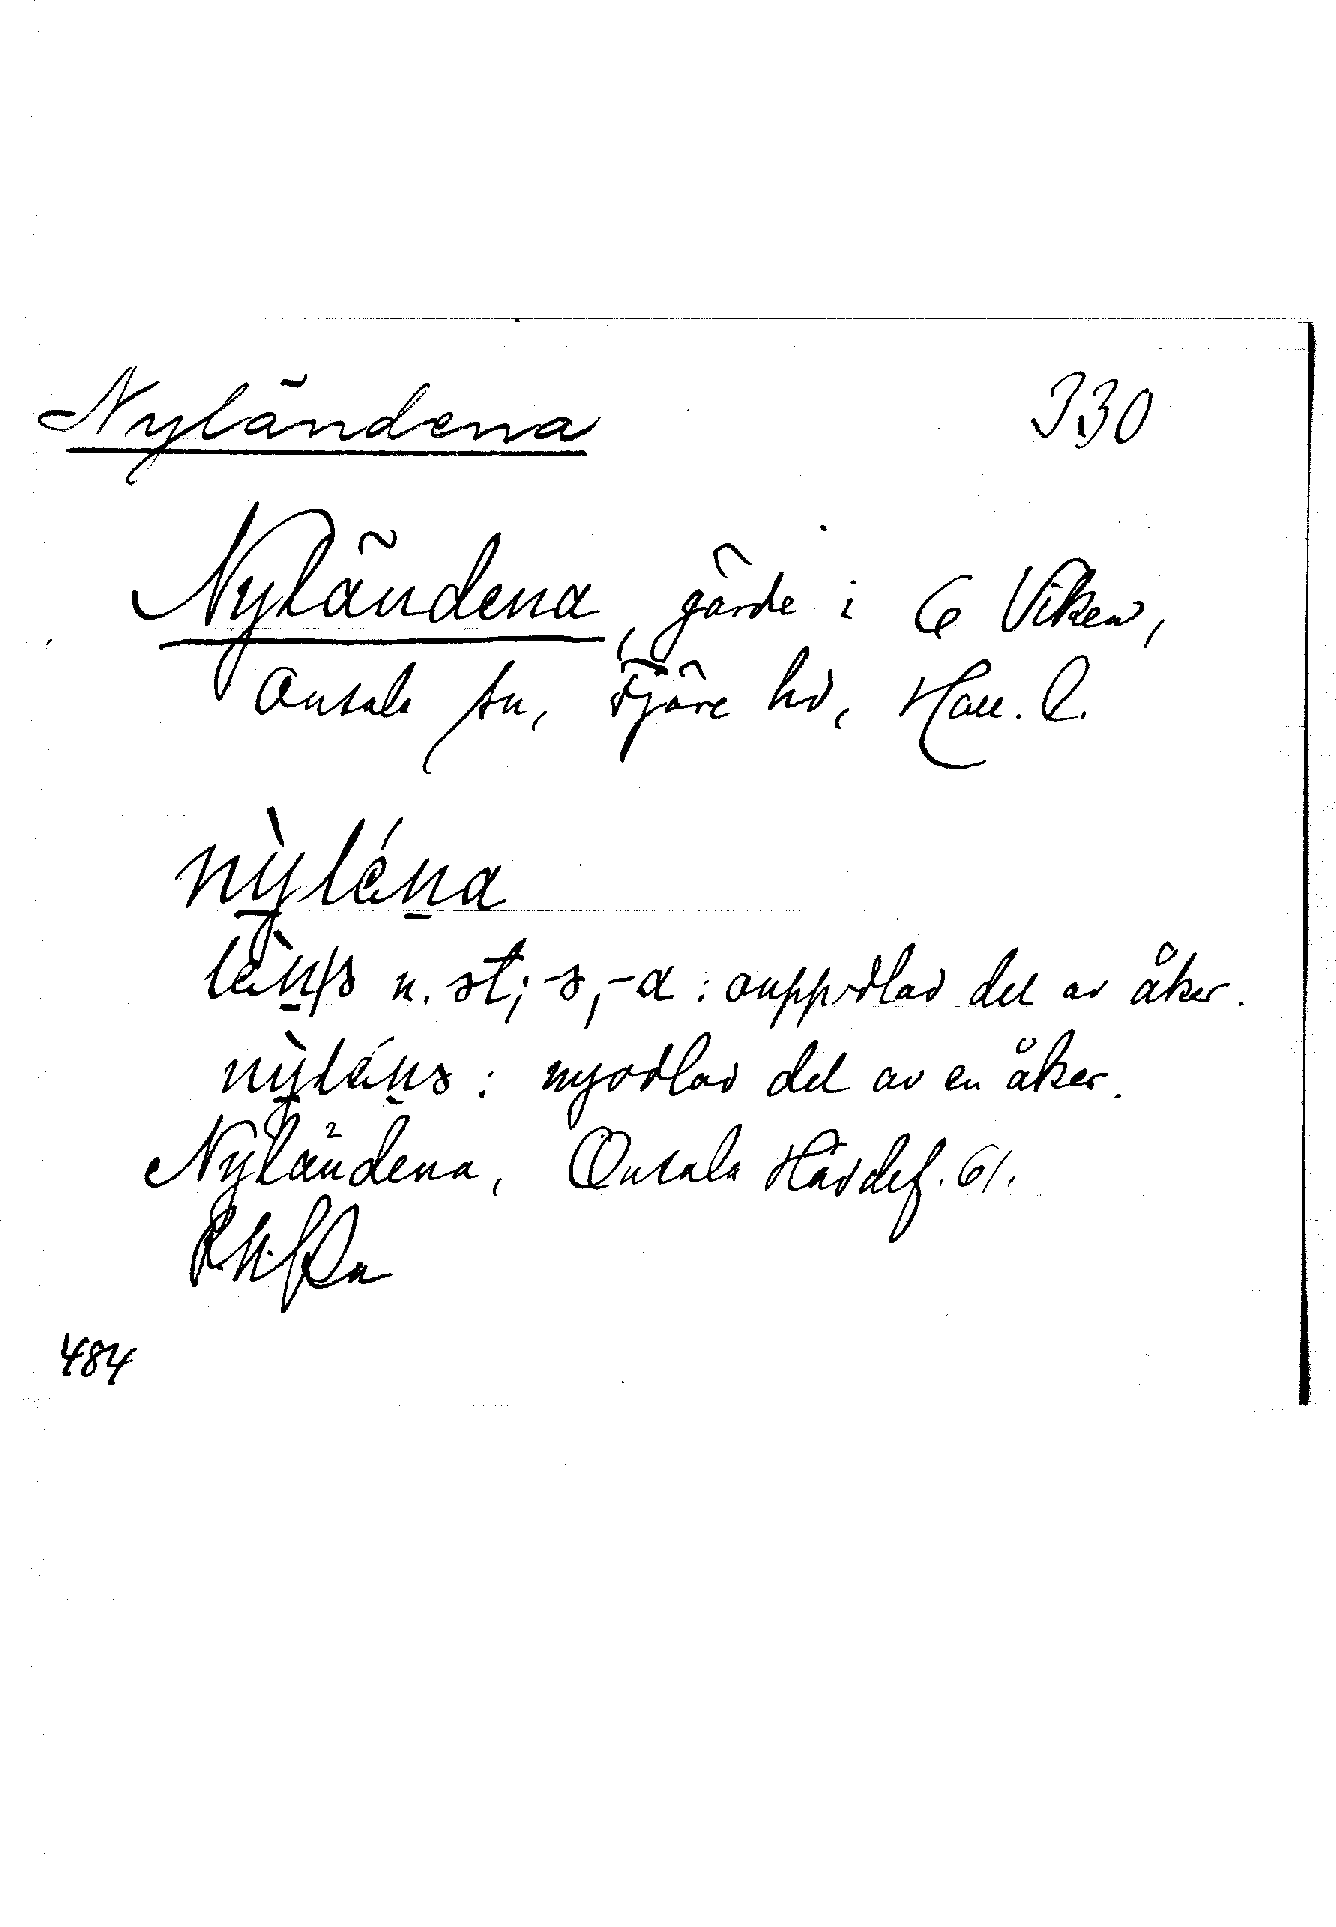 Nyländena 330
Nyländena, gärde i 6 Viken,
Onsala sn, Fjäre hd, Hall. l.
nỳléna
n. st; -s, -a: ouppodlad del av åker.
nỳléns: nyodlad del av en åker.
Nyländena, Onsala Härdef. 61.
484